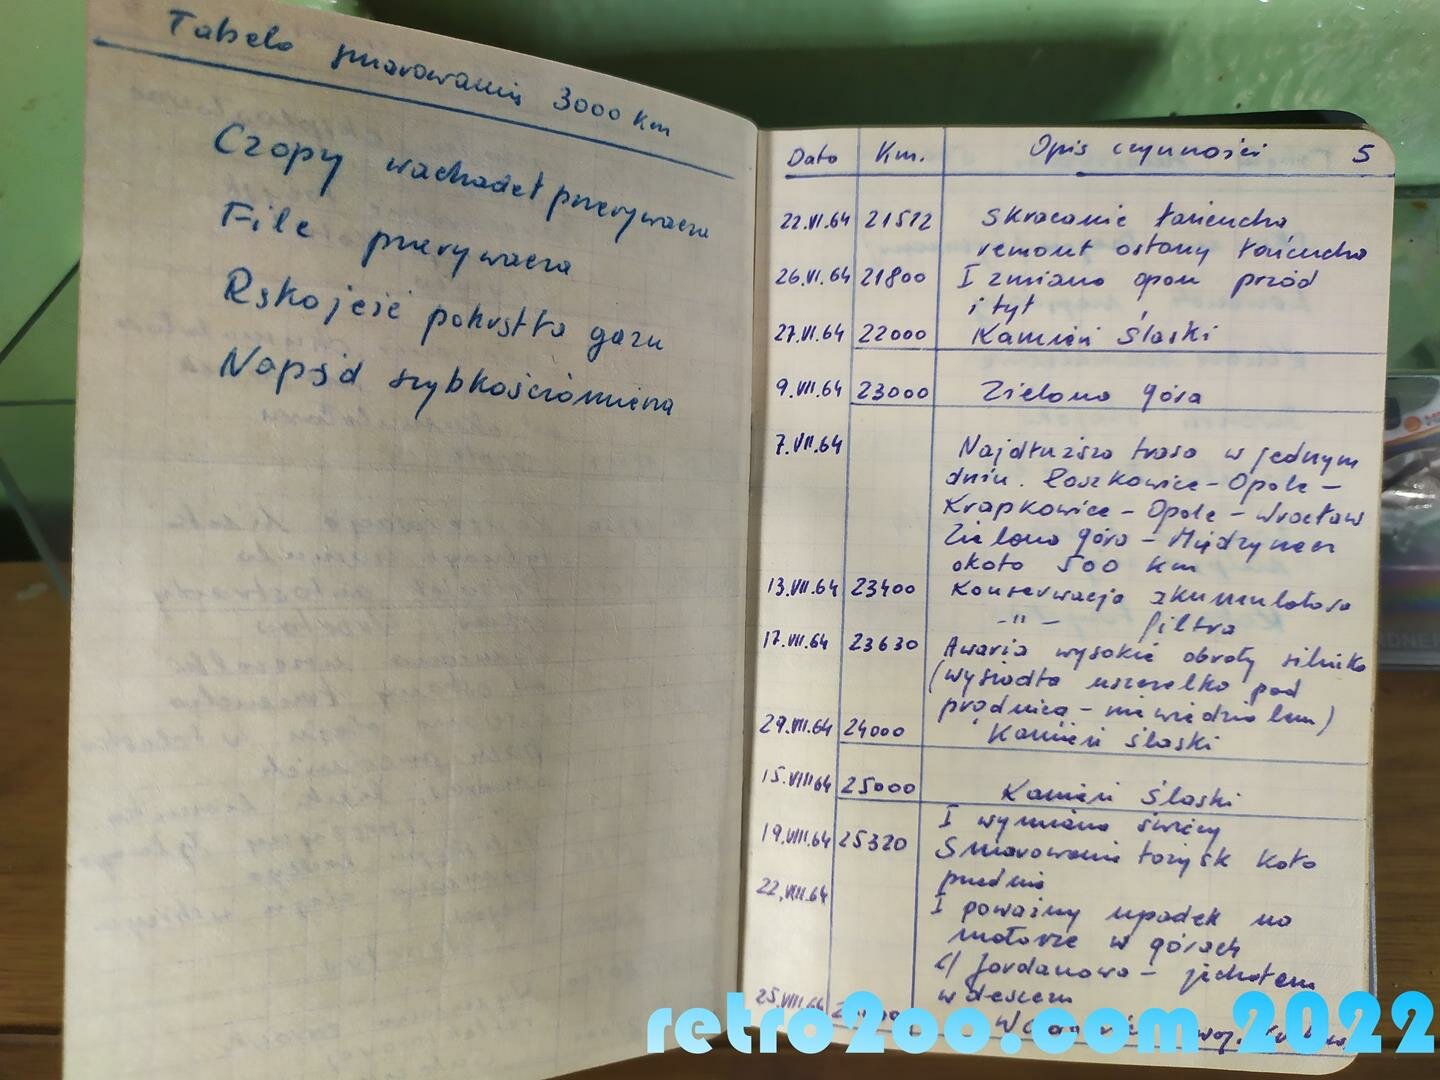 Tabela smarowania 3000 km
Czopy wachadeł przerywacza
Filc przerywacza
Rękojeść pokrętła gazu
Napęd szybkościomierza
Data Km. Opis czynności 5
22.VI.64 21512 Skracanie łańcucha
remont osłony łańcucha
26.VI.64 21800 I zmiana opon przód
i tył
27.VI.64 22000 Kamień Śląski
9.VII.64 23000 Zielona Góra
7.VII.64 Najdłuższa trasa w jednym
dniu. Łaszkowice - Opole -
Krapkowice - Opole - Wrocław
Zielona Góra - Międzyrzecz
około 500 km
13.VII.64 23400 Konserwacja akumulatora
-"- filtra
17.VII.64 23630 Awaria wysokie obroty silnika
(wysiadła uszczelka pod
prądnicą - nie wiedziałem)
29.VII.64 24000 Kamień Śląski
15.VIII.64 25000 Kamień Śląski
I wymiana świecy
19.VIII.64 25320 Smarowanie łożysk koła
przednie
22.VIII.64 I poważny upadek na
motorze w górach
k/Jordanowa - jechałem
w deszczu
25.VIII.64
retro2oo.com 2022